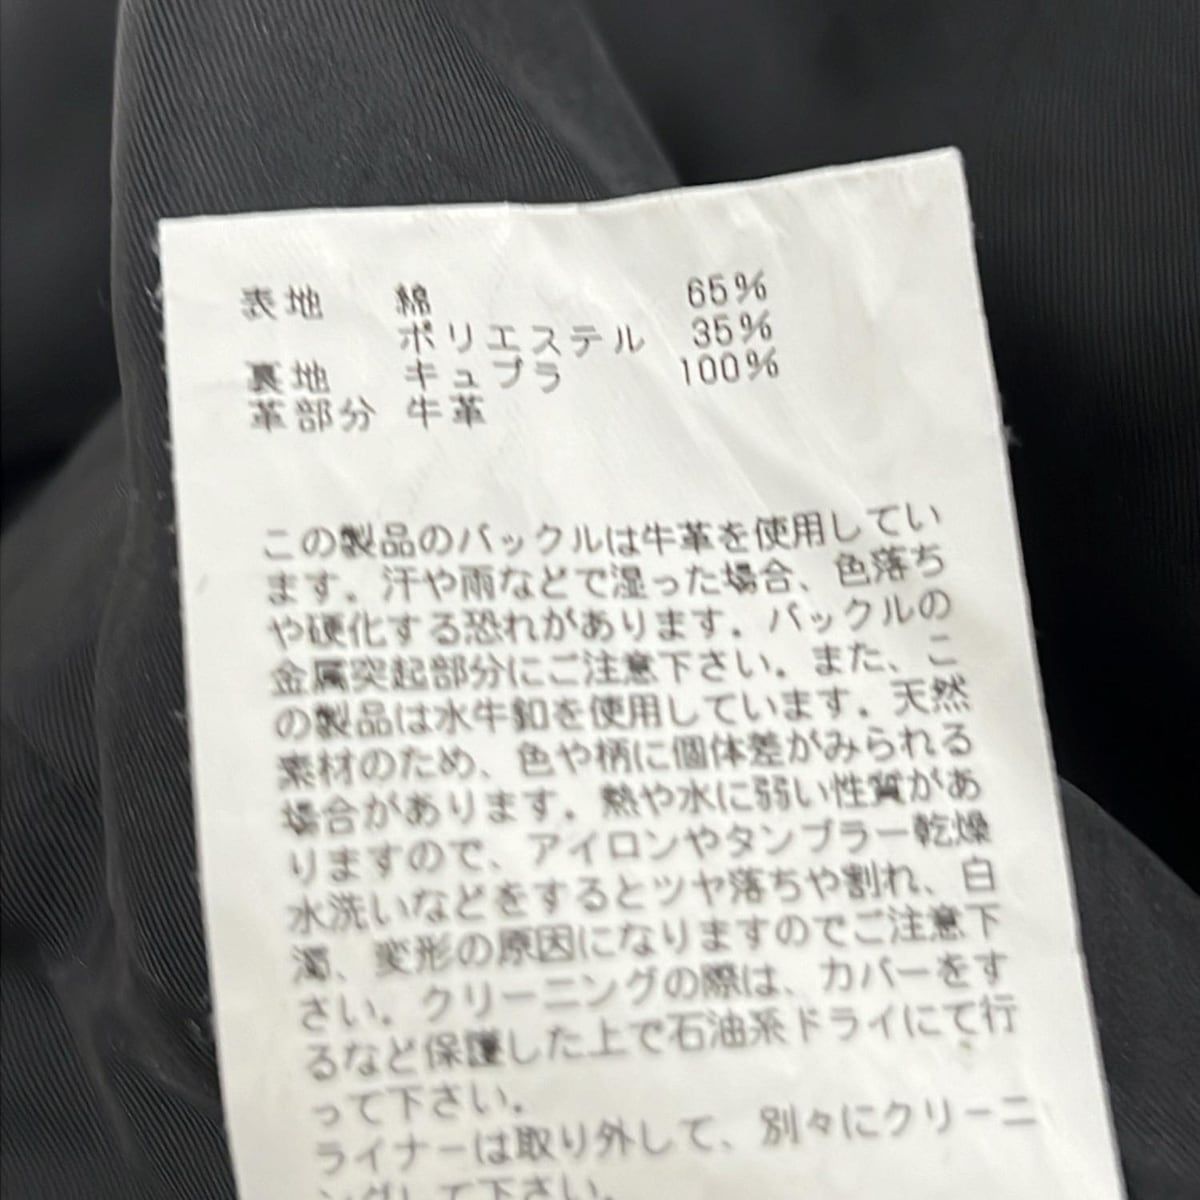 表地 綿 65%
ポリエステル 35%
裏地 キュプラ 100%
革部分 牛革
この製品のバックルは牛革を使用してい
ます。汗や雨などで湿った場合、色落ち
や硬化する恐れがあります。バックルの
金属突起部分にご注意下さい。また、こ
の製品は水牛釦を使用しています。天然
素材のため、色や柄に個体差がみられる
場合があります。熱や水に弱い性質があ
りますので、アイロンやタンブラー乾燥
水洗いなどをするとツヤ落ちや割れ、白
濁、変形の原因になりますのでご注意下
さい。クリーニングの際は、カバーをす
るなど保護した上で石油系ドライにて行
って下さい。
ライナーは取り外して、別々にクリーニ
ングして下さい。